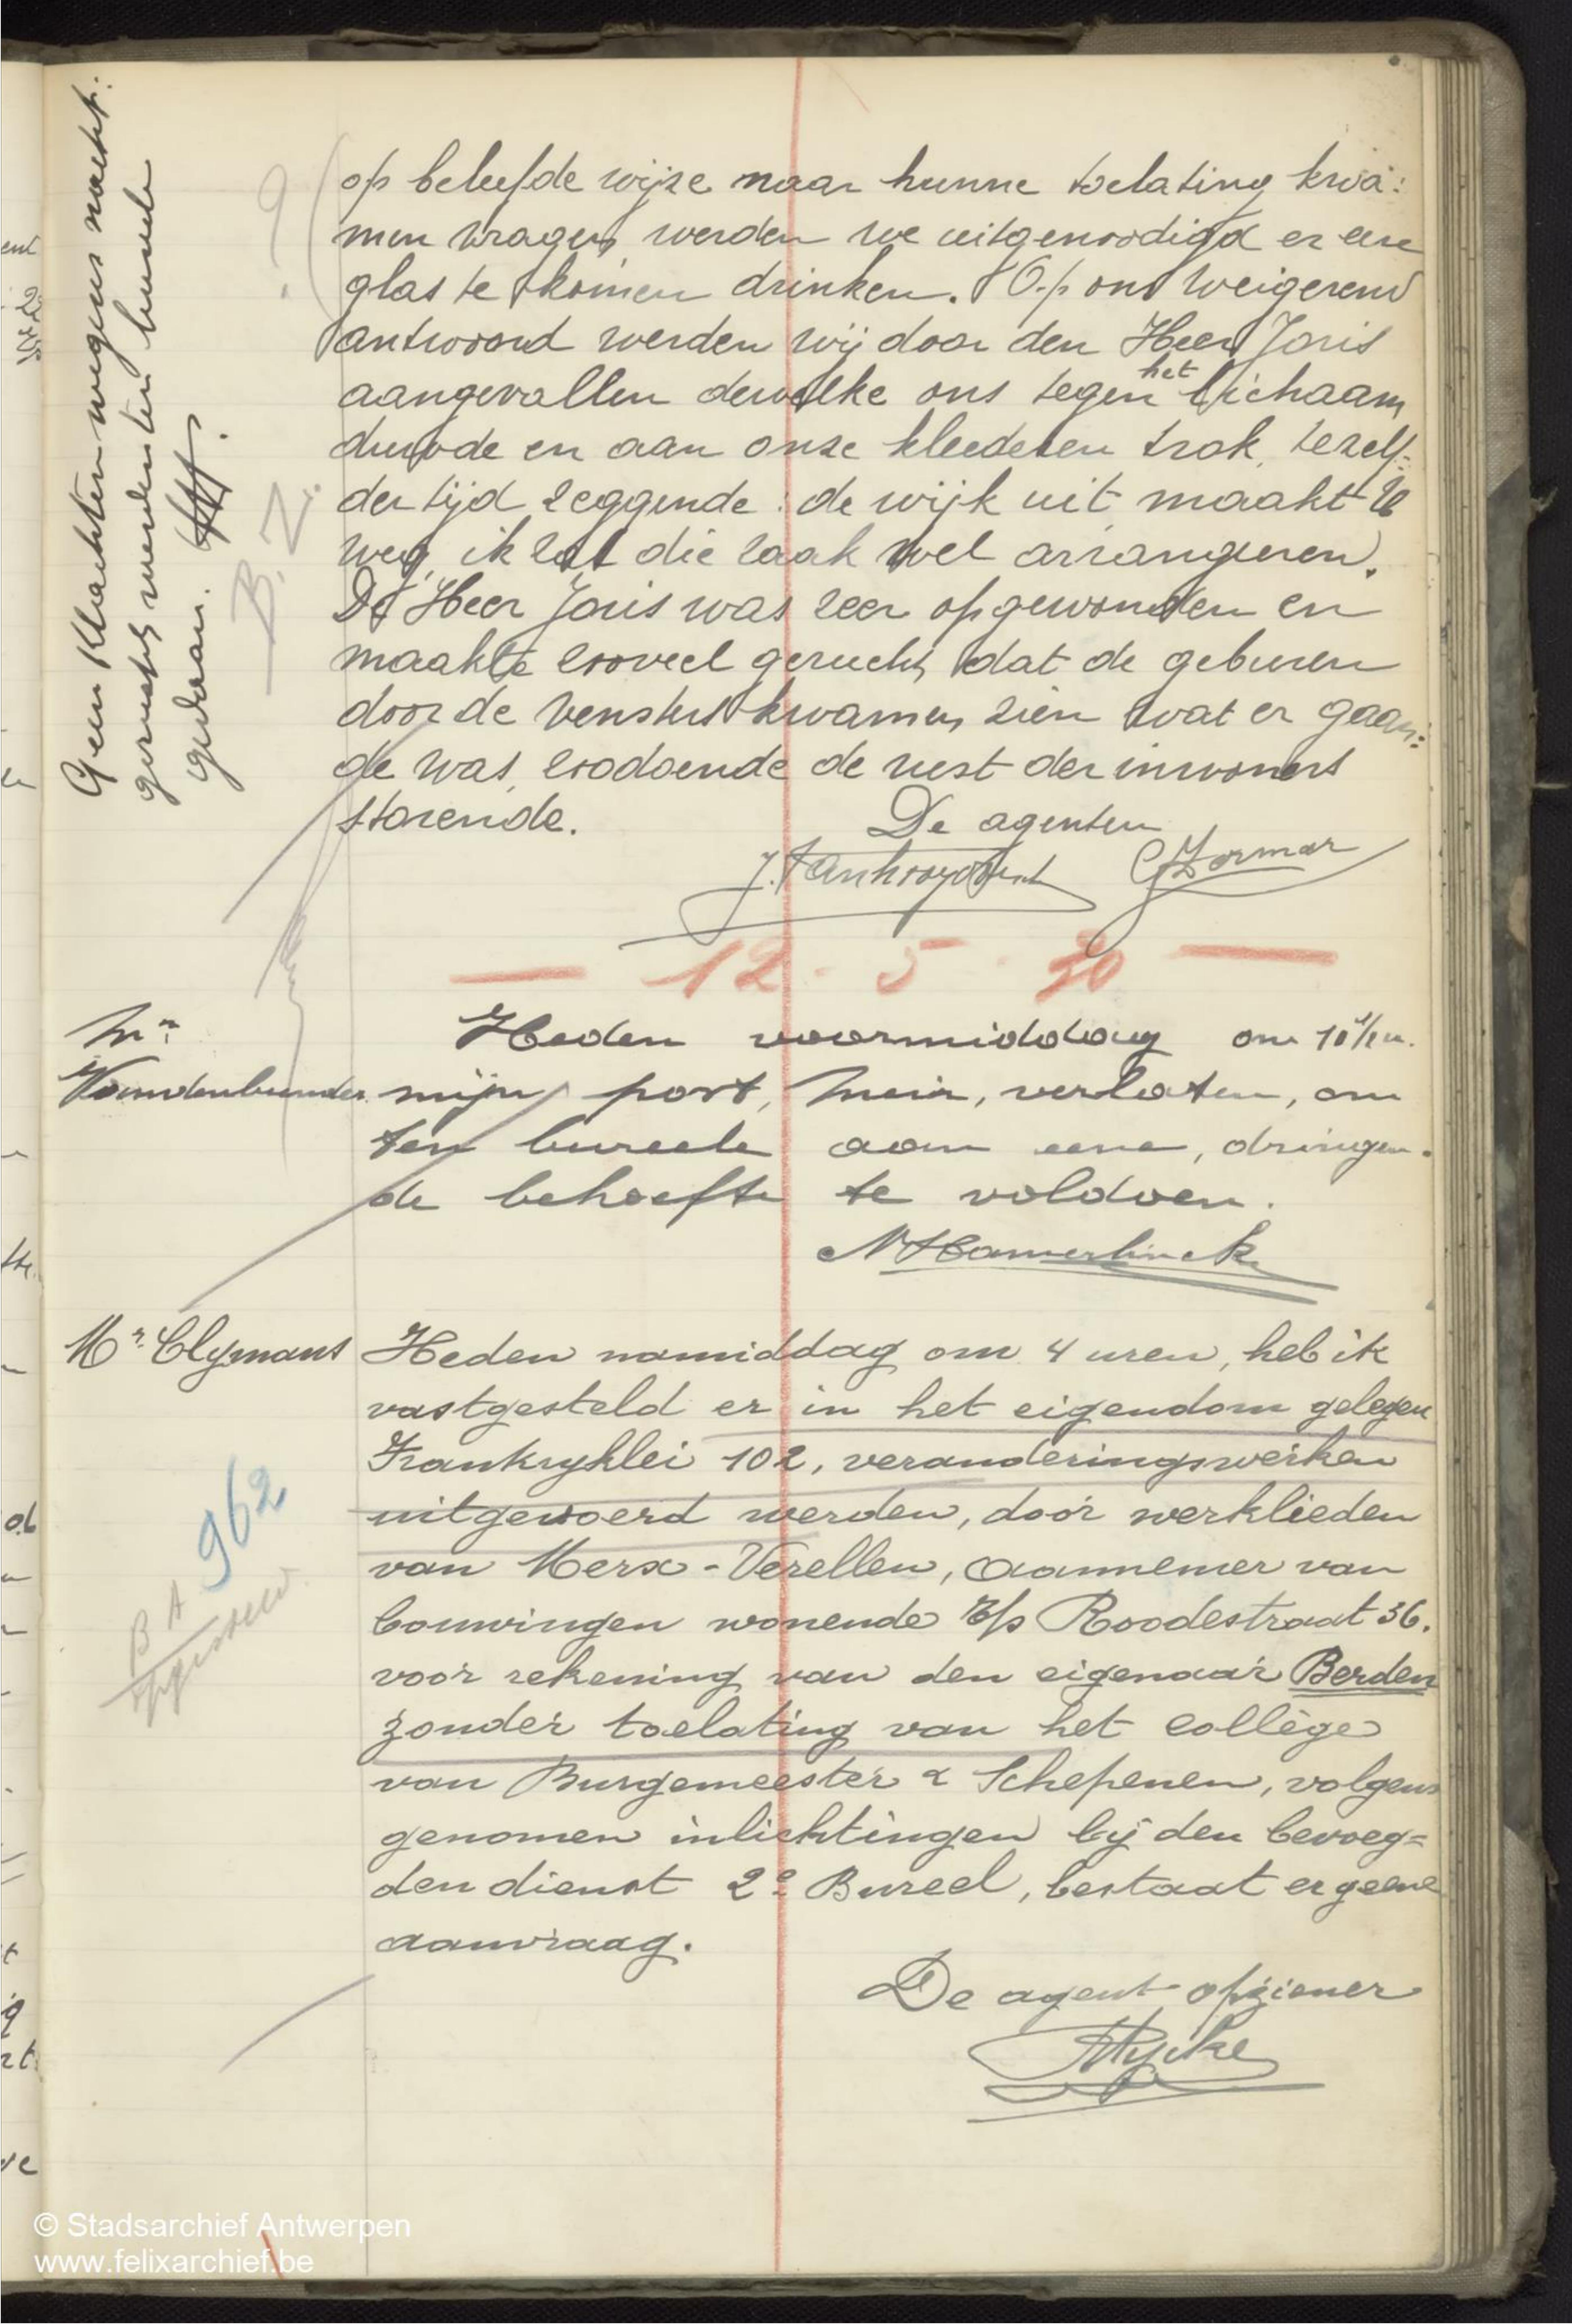 Geen klachten wegens nacht-
gerucht werden ten bureele
gedaan.
B. N.
op beleefde wijze naar hunne toelating kwa:
men vragen, werden we uitgenoodigd er een
glas te komen drinken. Op ons weigerend
antwoord werden wij door den Heer Joris
aangevallen dewelke ons tegen het lichaam
duwde en aan onze kleederen trok, terzelf-
der tijd zeggende: de wijk uit maakt U
weg, ik zal die zaak wel arrangeren.
De Heer Joris was zeer opgewonden en
maakte zooveel gerucht, dat de geburen
door de vensters kwamen zien wat er gaan:
de was, zoodoende de rust der inwoners
storende.
De agenten
12 - 5 - 30
Mr
Heden voormiddag om 10 1/2 u.
mijn post, Meir, verlaten, om
ten bureele aan eene, dringen-
de behoefte te voldoen.
NHamerlinck
Mr Clymans
Heden namiddag om 4 uren, heb ik
vastgesteld er in het eigendom gelegen
Frankryklei 102, veranderingswerken
uitgevoerd werden, door werklieden
van Merx-Verellen, aannemer van
bouwingen wonende Roodestraat 36.
voor rekening van den eigenaar Berden
zonder toelating van het collège
van Burgemeester & Schepenen, volgens
genomen inlichtingen bij den bevoeg=
den dienst 2e Bureel, bestaat er geene
aanvraag.
962
B A
De agent-opziener
© Stadsarchief Antwerpen
www.felixarchief.be